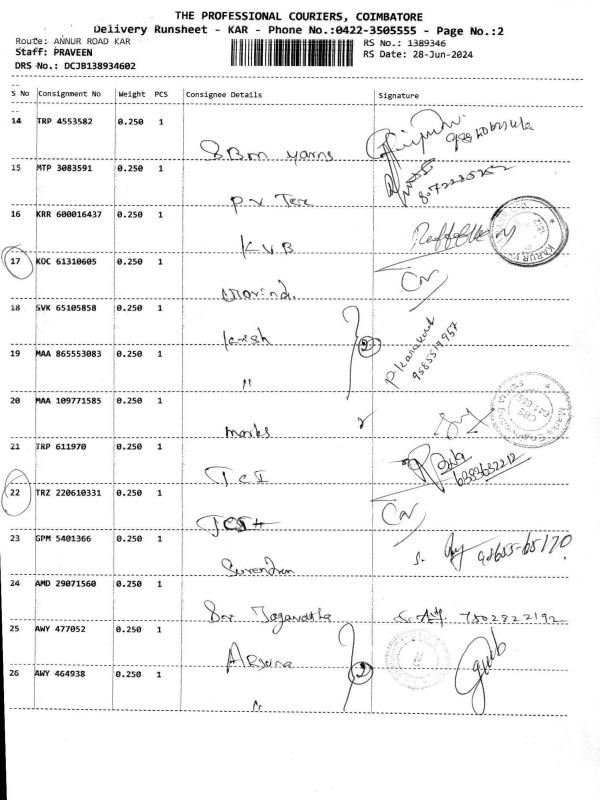 THE PROFESSIONAL COURIERS, COIMBATORE
Delivery Runsheet - KAR - Phone No.:0422-3505555 - Page No.:2
Route: ANNUR ROAD KAR RS No.: 1389346
Staff: PRAVEEN RS Date: 28-Jun-2024
DRS No.: DCJB138934602
S No Consignment No Weight PCS Consignee Details Signature
14 TRP 4553582 0.250 1
SBM yarns
15 MTP 3083591 0.250 1
P.V. Tex
16 KRR 600016437 0.250 1
K.V.B
17 KOC 61310605 0.250 1
18 SVK 65105858 0.250 1
2
19 MAA 865553083 0.250 1
"
P. Kanakavel
9585519957
20 MAA 109771585 0.250 1
marks
21 TRP 611970 0.250 1
TCI
6383632212
22 TRZ 220610331 0.250 1
23 GPM 5401366 0.250 1
Surendran
98655-65170
24 AMD 29071560 0.250 1
Sri Joganatha
7502822192
25 AWY 477052 0.250 1
2
26 AWY 464938 0.250 1
"